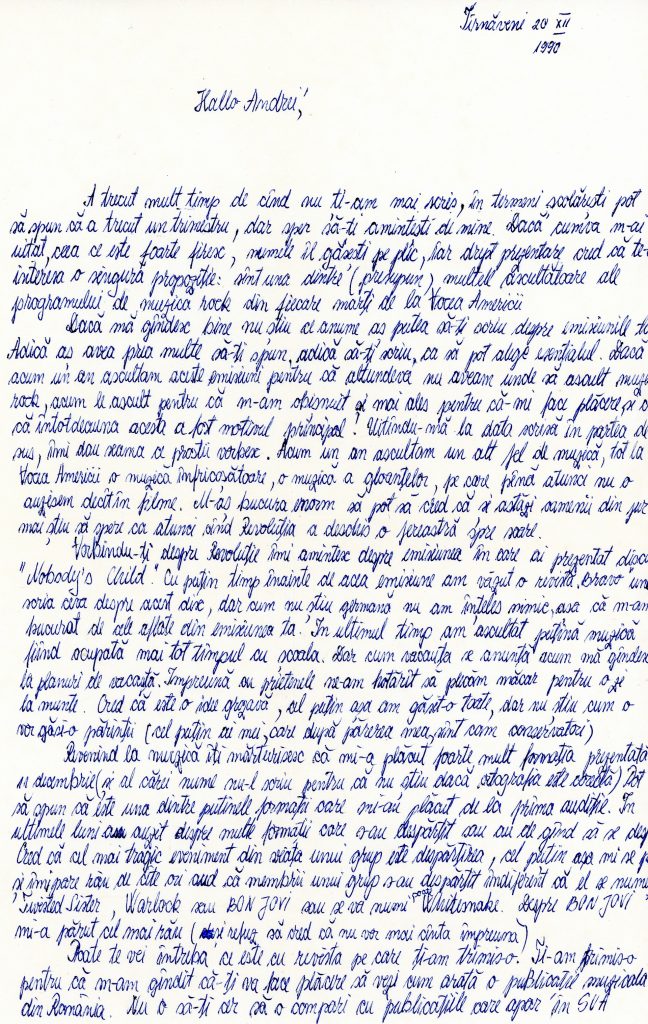 Tîrnăveni 20 XII
1990
Hallo Andrei!,
A trecut mult timp de cînd nu ti-am mai scris, în termeni scolăresti pot
să spun că a trecut un trimestru, dar sper să-ti amintesti de mine. Dacă cumva m-ai
uitat, ceea ce este foarte firesc, numele îl găsesti pe plic, iar drept prezentare cred că te-
interesa o singură propozitie: sînt una dintre (presupun) multele ascultătoare ale
programului de muzică rock din fiecare marti de la Vocea Americii
Dacă mă gîndesc bine nu stiu ce anume as putea să-ti scriu despre emisiunile
Adică as avea prea multe să-ti spun, adică să-ti scriu, ca să pot alege esentialul. Dacă
acum un an ascultam aceste emisiuni pentru că altundeva nu aveam unde să ascult
rock, acum le ascult pentru că m-am obisnuit si mai ales pentru că-mi face plăcere si
că întotdeauna acesta a fost motivul principal! Uitîndu-mă la data scrisă în partea de
sus, îmi dau seama ce prostii vorbesc. Acum un an ascultam un alt fel de muzică, tot la
Vocea Americii o muzică înfricosătoare, o muzică a gloantelor, pe care pînă atunci nu o
auzisem decît în filme. M-as bucura enorm să pot să cred că si astăzi oamenii din
mai stiu să spere ca atunci cînd Revolutia a deschis o fereastră spre soare.
Vorbindu-ti despre Revolutie îmi amintesc despre emisiunea în care ai prezentat
"Nobody's Child". Cu putin timp înainte de acea emisiune am văzut o revistă Bravo
scria ceva despre acest disc, dar cum nu stiu germană nu am înteles nimic, asa că m-am
bucurat de cele aflate din emisiunea ta. În ultimul timp am ascultat putină muzică
fiind ocupată mai tot timpul cu scoala. Dar cum vacanta se anuntă acum mă gîndesc
la planuri de vacantă. Împreună cu prietenele ne-am hotărît să plecăm măcar pentru o zi
la munte. Cred că este o idee grozavă, cel putin asa am găsit-o toate, dar nu stiu cum o
vor găsi-o părintii (cel putin ai mei, care după părerea mea, sînt cam conservatori)
Revenind la muzică îti mărturisesc că mi-a plăcut foarte mult formatia prezentată
11 decembrie (si al cărei nume nu-l scriu pentru că nu stiu dacă ortografia este corectă) Pot
să spun că este una dintre putinele formatii care mi-au plăcut de la prima auditie. În
ultimele luni am auzit despre multe formatii care s-au despărtit sau au de gînd să se
Cred că cel mai tragic eveniment din viata unui grup este despărtirea, cel putin asa mi se
si îmi pare rău de cîte ori aud că membrii unui grup s-au despărtit indiferent că el se
Twisted Sister, Warlock sau BON JOVI sau se va numi poate Whitesnake. Despre BON JOVI
mi-a părut cel mai rău (si refuz să cred că nu vor mai cînta împreună)
Poate te vei întreba ce este cu revista pe care ti-am trimis-o. Ti-am trimis-o
pentru că m-am gîndit că-ti va face plăcere să vezi cum arată o publicatie muzicală
din România. Nu o să-ti cer să o compari cu publicatiile care apar în SUA